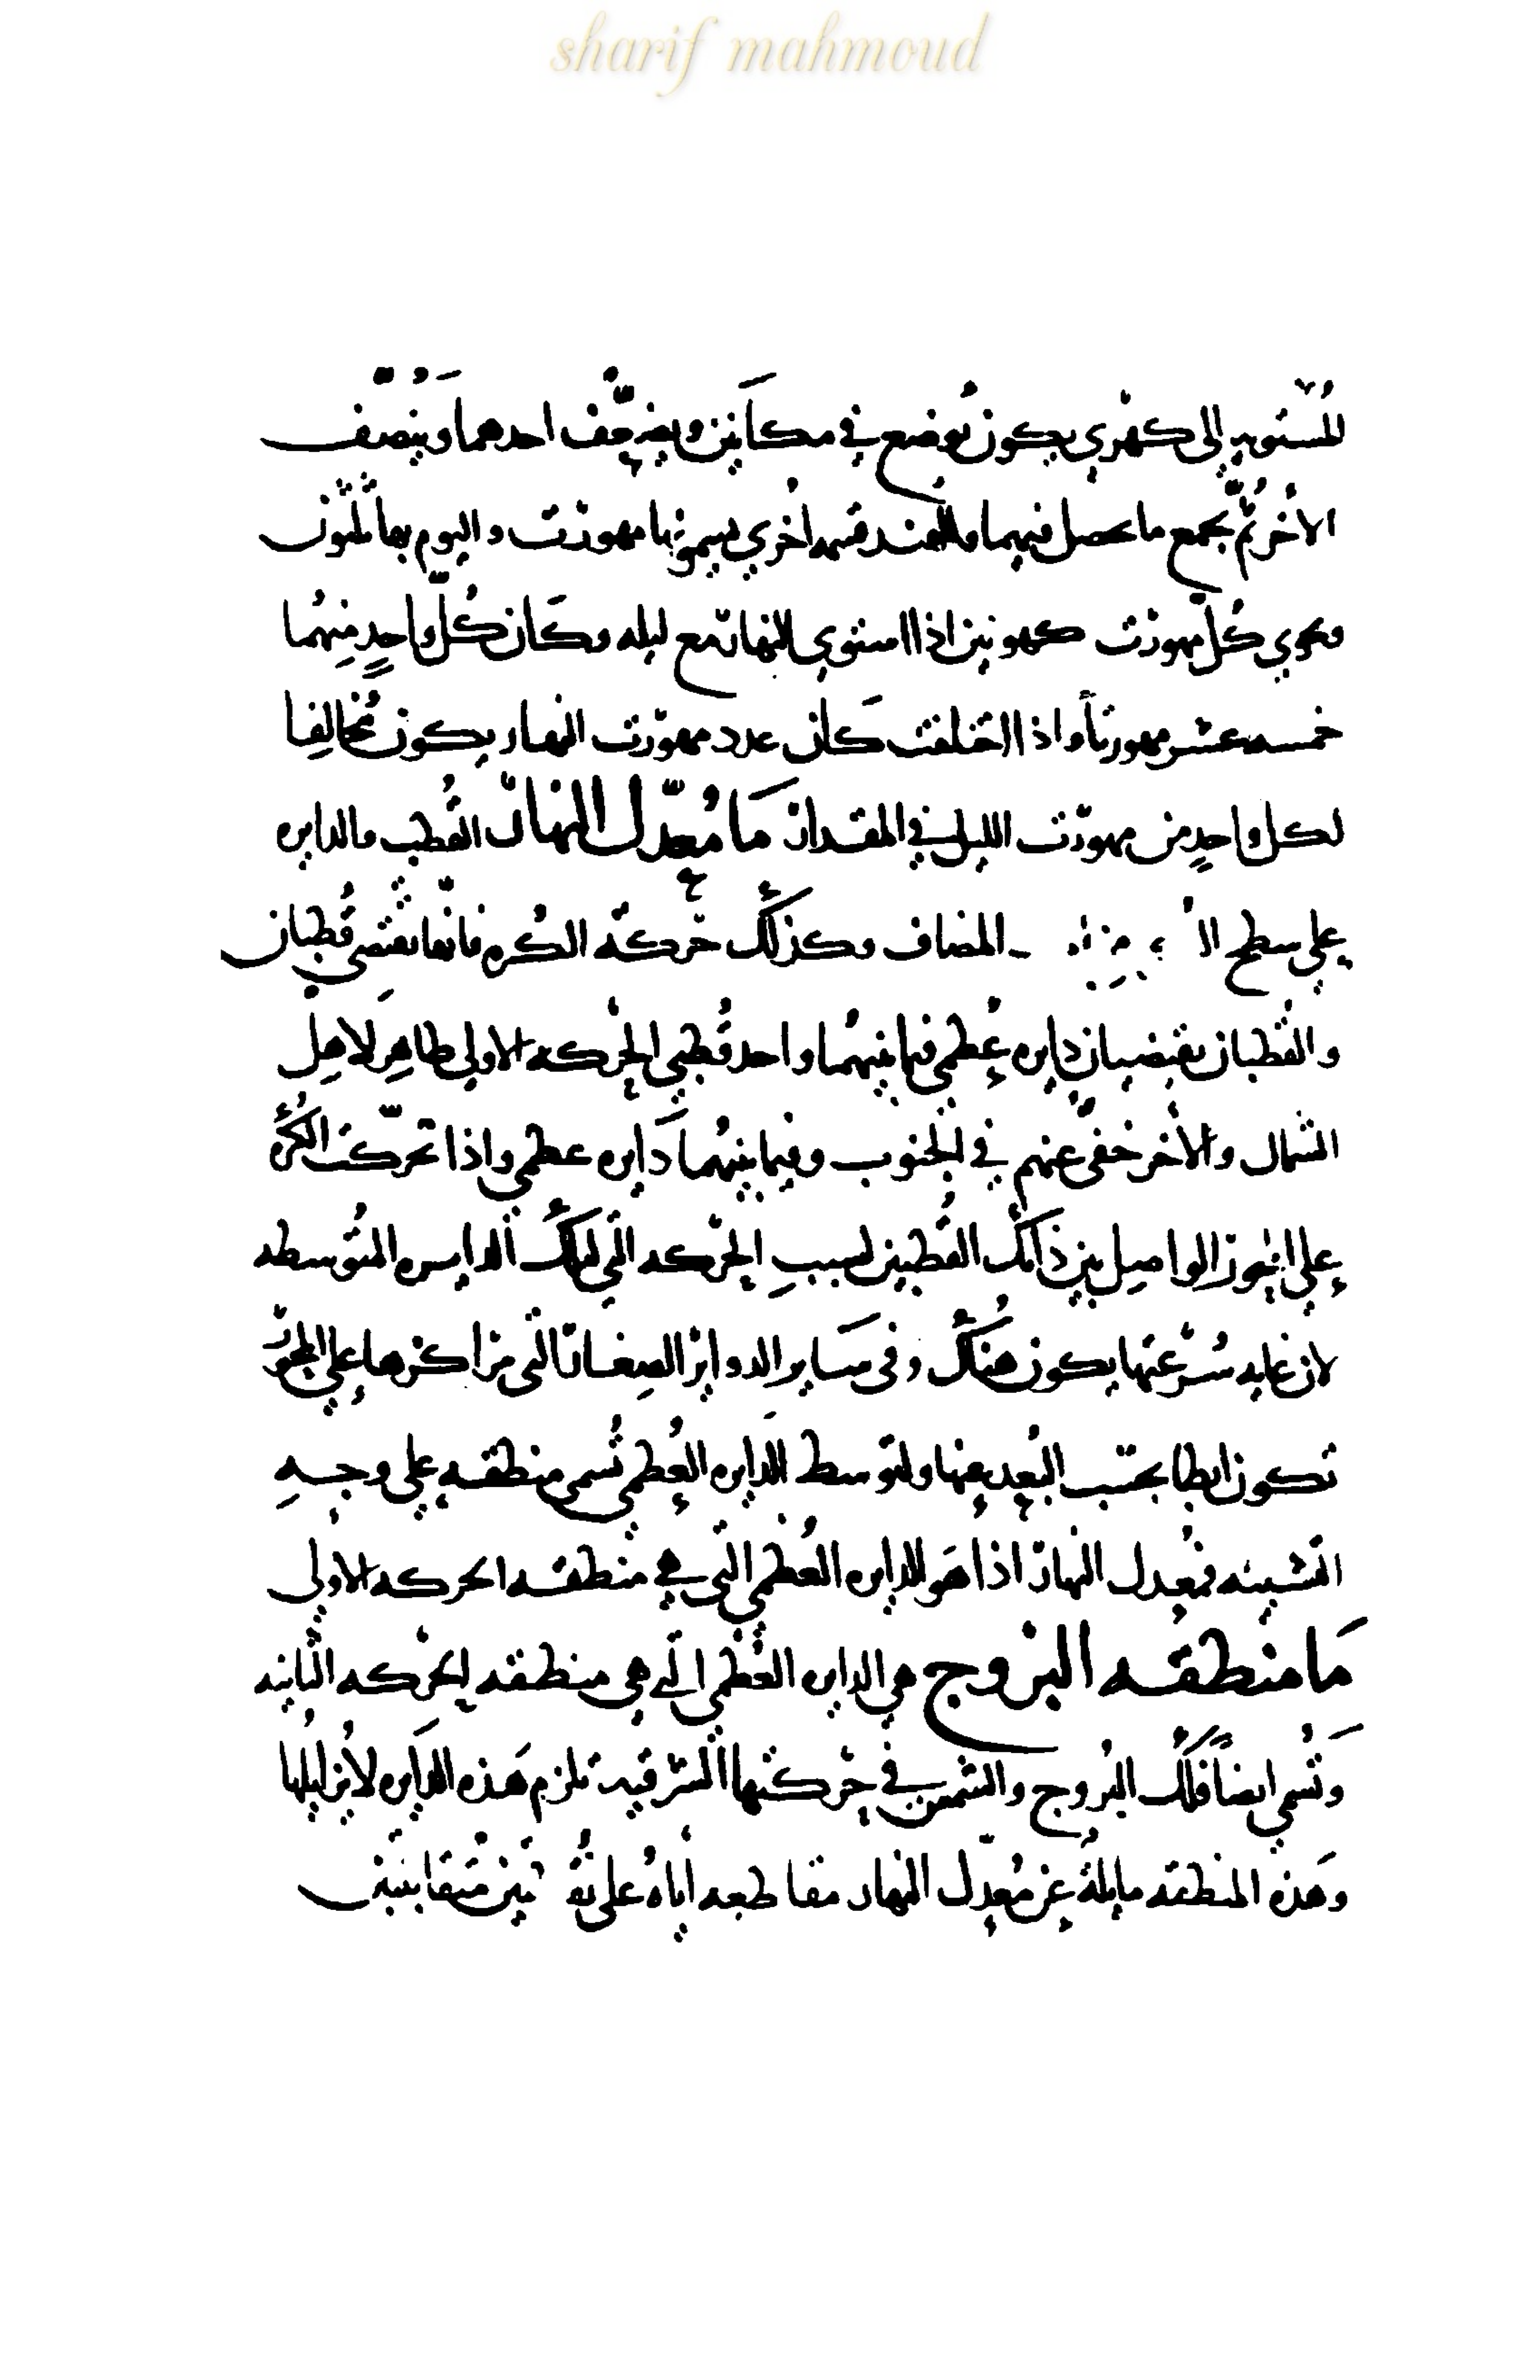 sharif mahmoud
المُستويه إلى كهري يكون يُوضع في مكانين ويضعّف احدهما ويُنصّف
الأخر ثُمّ يجمع ما يحصل فيهما وللهند قسمه أخري يسمونها مهورت واليوم بها ثلثون
ويحوي كُلّ مهورت كهوتين اذا استوي النهار مع ليله وكان كُلّ واحدٍ مِنهُما
خمسه عشر مهورتاً واذا اختلفت كان عدد مهورت النهار يكون مُخالِفا
لكل واحدٍ من مهورت الليل في المقدار مَا مُعدّل النهار القُطب والدايره
علي سطح المضاف وكذلك حَركة الكُره فانّها تقتضي قُطبان
والقُطبان يقتضيان دايره عُظمي فيما بينهُما واحد قُطبي الحركه الاولي ظاهِر لاهل
الشمال والأخر خفيّ عنهم في الجنوب وفيما بينهُما دَايره عظمي واذا تحرّكت الكُرَه
علي المحور الواصِل بين ذانك القُطبين لسببِ الحركه التي لتلك الدايره المتُوسطه
لان غايه سُرعتها يكون هُنَاك وفي سَاير الدواير الصِغار التي مراكزها علي المحور
تكون ابطا بحَسب البُعد عنها ولتوسط الدَايره العُظمي تُسمي منطقه علي وجهِ
التشبيه فمُعدل النهار اذا هَو الدايره العُظمي التي هي منطقه الحركه الاولي
مَا منطقُه البرُوج هي الدايره العُظمي التي هي منطقه الحركه الثانيه
وَتُسمي ايضاً فَلَك البُروج والشمس في حركتها الشرقيه تلزم هَذه الدَايره لا يزايلها
وهَذه المنطقه مايلةً عن مُعدّل النهار مقاطعه أياهُ على متقابلتين